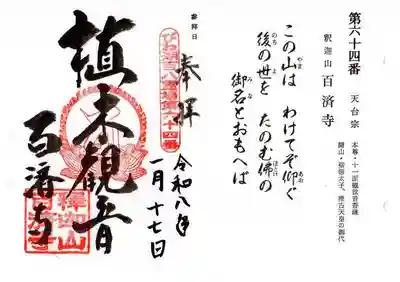 第六十四番　天台宗　本尊・十一面観世音菩薩
釈迦山　百済寺　開山・聖徳太子、推古天皇の御代
この山は　わけてぞ仰ぐ
後の世を　たのむ佛の
御名とおもへば
やま
あお
のち
よ
ほとけ
みな
参拝日
奉拝
びわ湖百八霊場第六十四番
令和八年
一月十七日
植木観音
百済寺
釈迦山